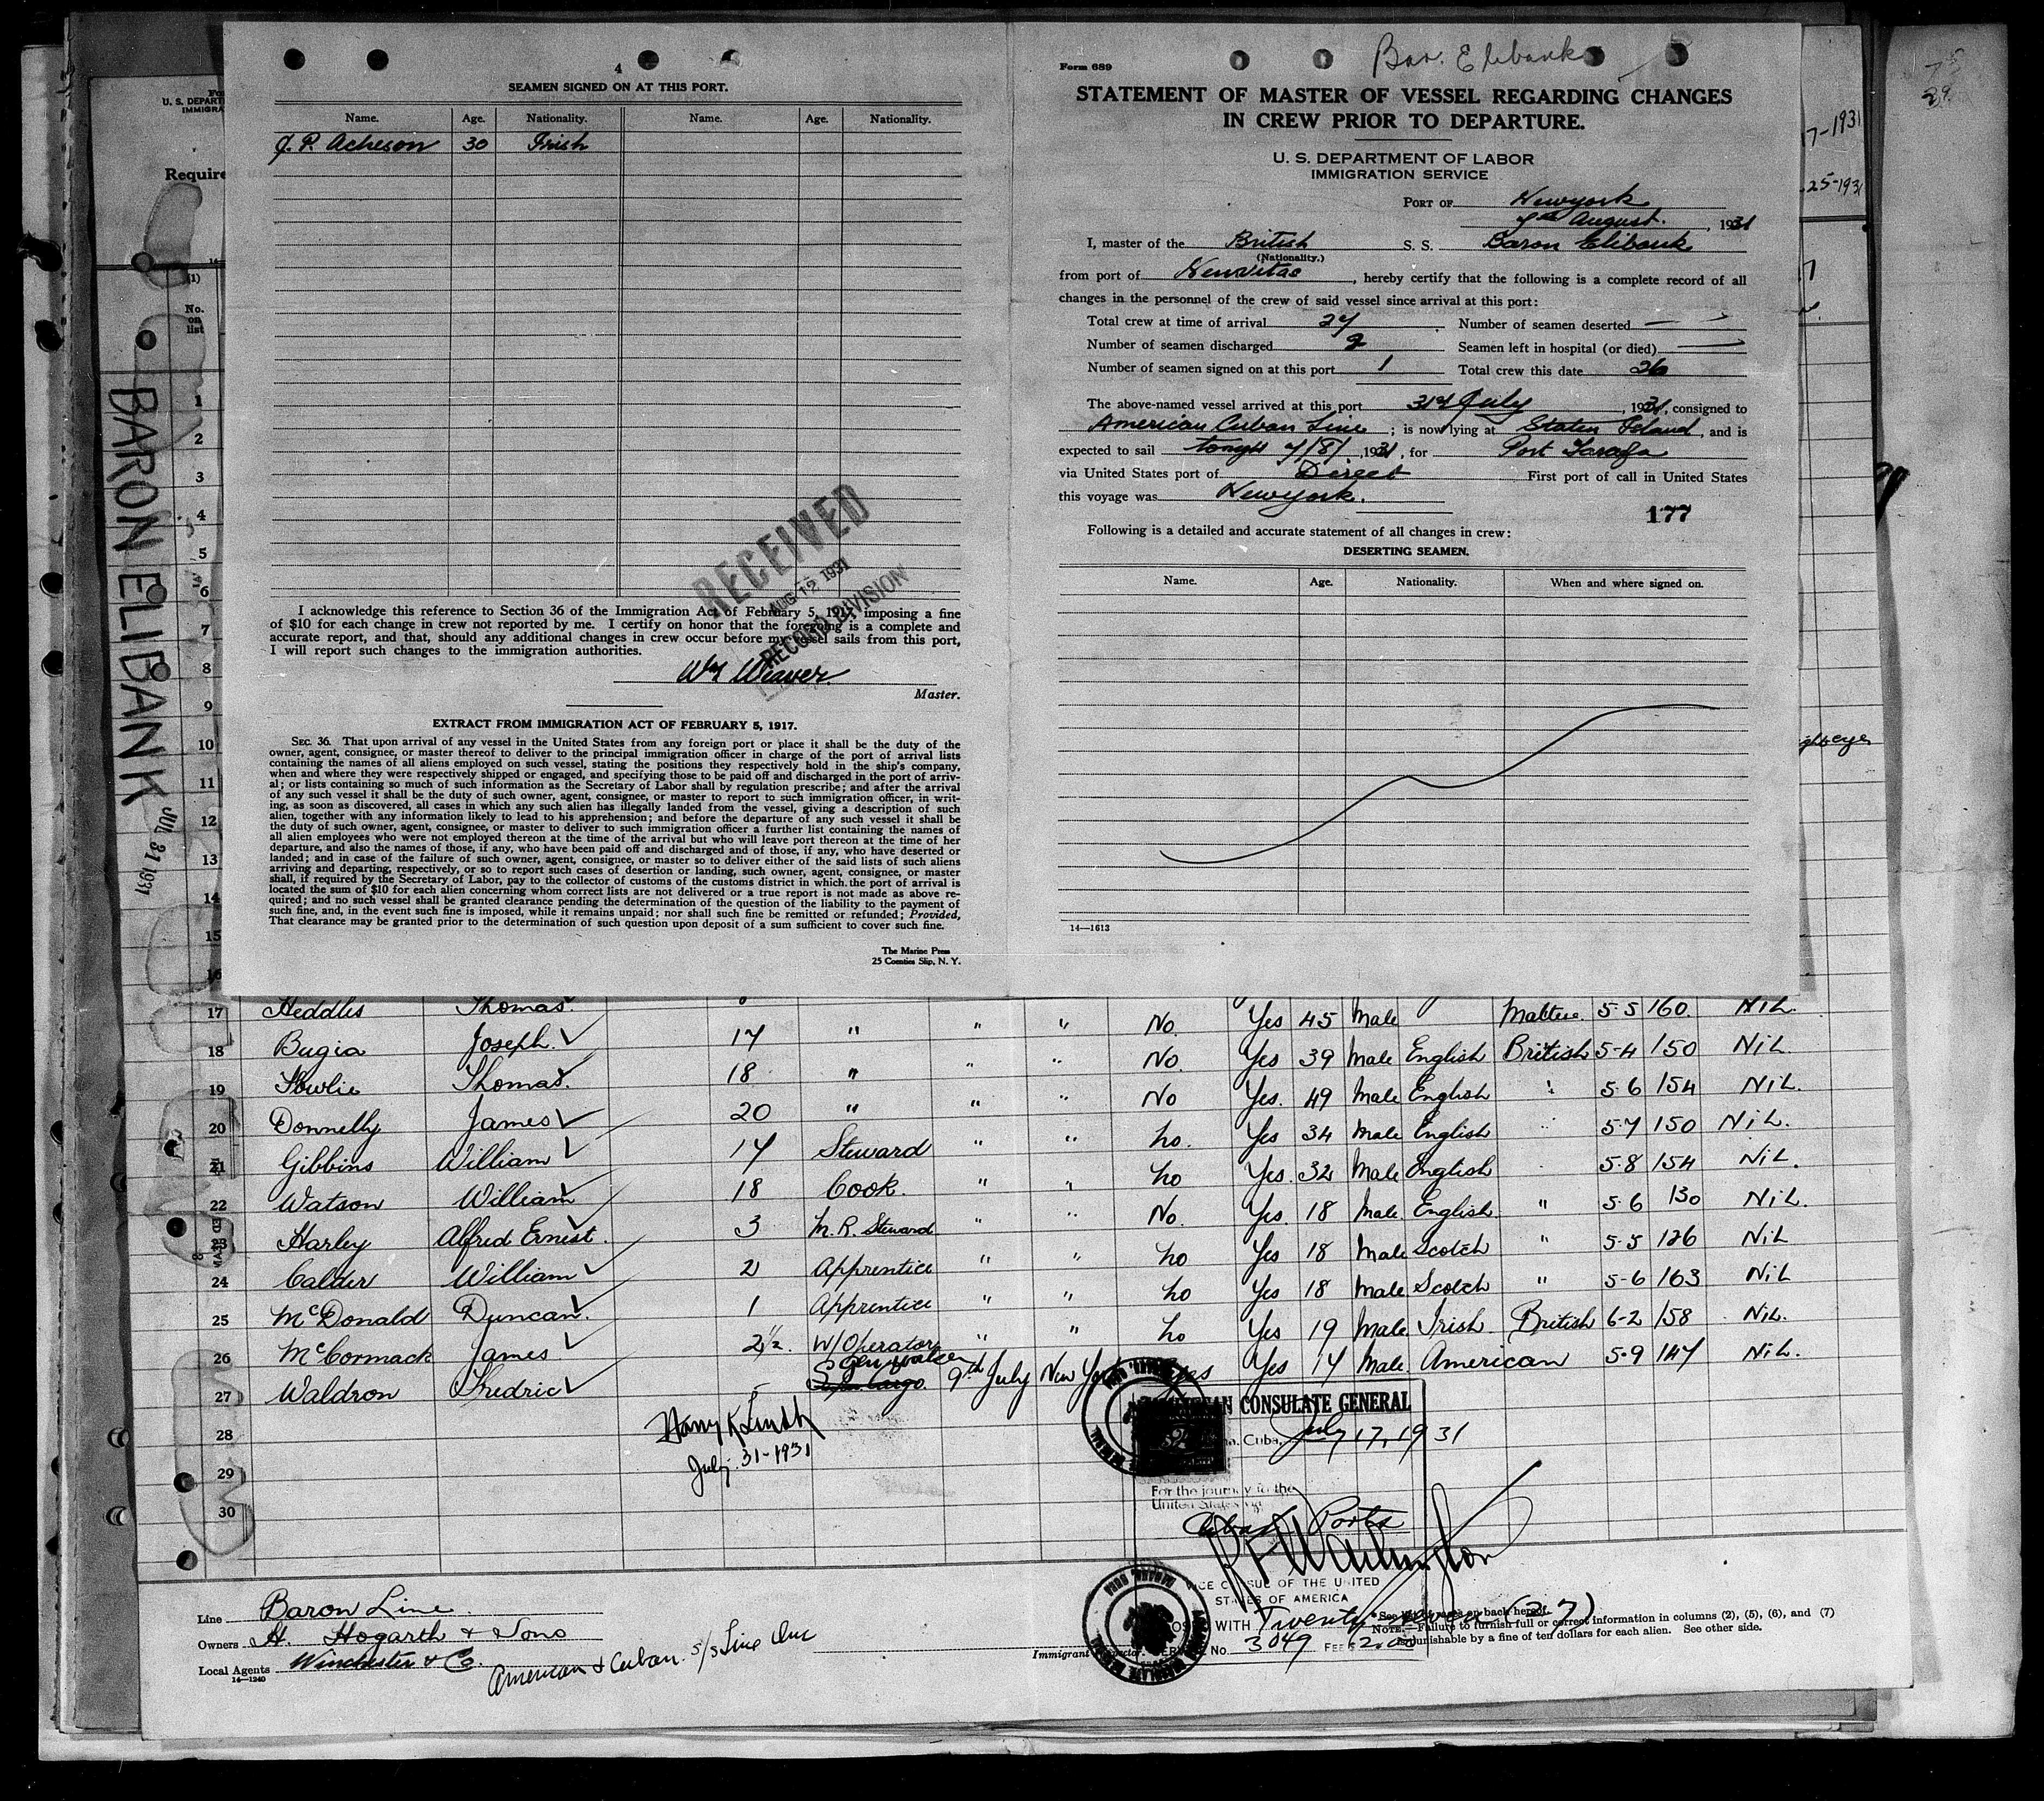 4
SEAMEN SIGNED ON AT THIS PORT.
Name. Age. Nationality. Name. Age. Nationality.
J. P. Acheson 30 Irish
I acknowledge this reference to Section 36 of the Immigration Act of February 5, 1917, imposing a fine
of $10 for each change in crew not reported by me. I certify on honor that the foregoing is a complete and
accurate report, and that, should any additional changes in crew occur before my vessel sails from this port,
I will report such changes to the immigration authorities.
RECEIVED
AUG 12 1931
RECORD DIVISION
Wm Weaver
Master.
EXTRACT FROM IMMIGRATION ACT OF FEBRUARY 5, 1917.
SEC. 36. That upon arrival of any vessel in the United States from any foreign port or place it shall be the duty of the
owner, agent, consignee, or master thereof to deliver to the principal immigration officer in charge of the port of arrival lists
containing the names of all aliens employed on such vessel, stating the positions they respectively hold in the ship's company,
when and where they were respectively shipped or engaged, and specifying those to be paid off and discharged in the port of arriv-
al; or lists containing so much of such information as the Secretary of Labor shall by regulation prescribe; and after the arrival
of any such vessel it shall be the duty of such owner, agent, consignee, or master to report to such immigration officer, in writ-
ing, as soon as discovered, all cases in which any such alien has illegally landed from the vessel, giving a description of such
alien, together with any information likely to lead to his apprehension; and before the departure of any such vessel it shall be
the duty of such owner, agent, consignee, or master to deliver to such immigration officer a further list containing the names of
all alien employees who were not employed thereon at the time of the arrival but who will leave port thereon at the time of her
departure, and also the names of those, if any, who have been paid off and discharged and of those, if any, who have deserted or
landed; and in case of the failure of such owner, agent, consignee, or master so to deliver either of the said lists of such aliens
arriving and departing, respectively, or so to report such cases of desertion or landing, such owner, agent, consignee, or master
shall, if required by the Secretary of Labor, pay to the collector of customs of the customs district in which the port of arrival is
located the sum of $10 for each alien concerning whom correct lists are not delivered or a true report is not made as above re-
quired; and no such vessel shall be granted clearance pending the determination of the question of the liability to the payment of
such fine, and, in the event such fine is imposed, while it remains unpaid; nor shall such fine be remitted or refunded; Provided,
That clearance may be granted prior to the determination of such question upon deposit of a sum sufficient to cover such fine.
The Marine Press
25 Coenties Slip, N. Y.
Bar. Elibank
Form 689
STATEMENT OF MASTER OF VESSEL REGARDING CHANGES
IN CREW PRIOR TO DEPARTURE.
U. S. DEPARTMENT OF LABOR
IMMIGRATION SERVICE
PORT OF Newyork
7th August. , 1931
I, master of the British S. S. Baron Elibank
(Nationality.)
from port of Neuvitas, hereby certify that the following is a complete record of all
changes in the personnel of the crew of said vessel since arrival at this port:
Total crew at time of arrival 27 Number of seamen deserted
Number of seamen discharged 2 Seamen left in hospital (or died)
Number of seamen signed on at this port 1 Total crew this date 26
The above-named vessel arrived at this port 31st July, 1931, consigned to
American Cuban Line; is now lying at Staten Island, and is
expected to sail tonight 7/8/, 1931, for Port Tarafa
via United States port of Direct First port of call in United States
this voyage was Newyork.
177
Following is a detailed and accurate statement of all changes in crew:
DESERTING SEAMEN.
Name. Age. Nationality. When and where signed on.
14—1613
U. S. DEPART
IMMIGRA
Require
(1)
No.
on
list
BARON ELIBANK
JUL 31 1931
7-1931
25-1931
1
2
3
4
5
6
7
8
9
10
11
12
13
14
15
16
17 Heddles Thomas Yes 45 Male Maltese 5-5 160 Nil.
18 Bugia Joseph 17 " " " No. Yes 39 Male English British 5-4 150 Nil.
19 Fowlie Thomas. 18 " " " No. Yes. 49 Male English " 5 6 154 Nil.
20 Donnelly James 20 " " " No Yes 34 Male English " 5-7 150 Nil.
21 Gibbins William 17 Steward " " no. Yes. 32 Male English 5.8 154 Nil.
22 Watson William 18 Cook. " " no Yes. 18 Male. English " 5 6 130 Nil.
23 Harley Alfred Ernest. 3 M. R. Steward " " No. Yes 18 Male Scotch " 5-5 126 Nil
24 Calder William 2 Apprentice " " no Yes 18 Male Scotch " 5-6 163 Nil
25 McDonald Duncan. 1 Apprentice " " no Yes 19 Male. Irish British 6-2 158 Nil.
26 McCormack James 2½. W/Operator " " no Yes 17 Male American 5-9 147 Nil.
27 Waldron Fredric 9th July New York yes
28
29
30
Harry K Smith
July 31-1931
CONSULATE GENERAL
Cuba, July 17, 1931
For the journey to the
United States via
Cuban Ports
VICE CONSUL OF THE UNITED
STATES OF AMERICA
WITH Twenty seven (27)
No. 3049 FEE $2.00
Line Baron Line.
Owners H. Hogarth & Sons
Local Agents Winchester & Co. American & Cuban s/s Line Inc
14—1240
Immigrant Inspector.
*See
on back hereof.
NOTE.—Failure to furnish full or correct information in columns (2), (5), (6), and (7)
is punishable by a fine of ten dollars for each alien. See other side.